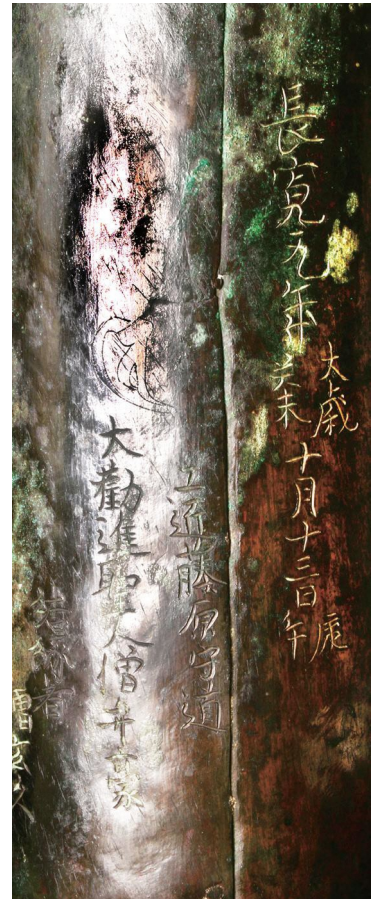 長寛元年大歳癸未十月十三日庚午
工匠藤原守道
大勸進聖人僧
結縁者
僧